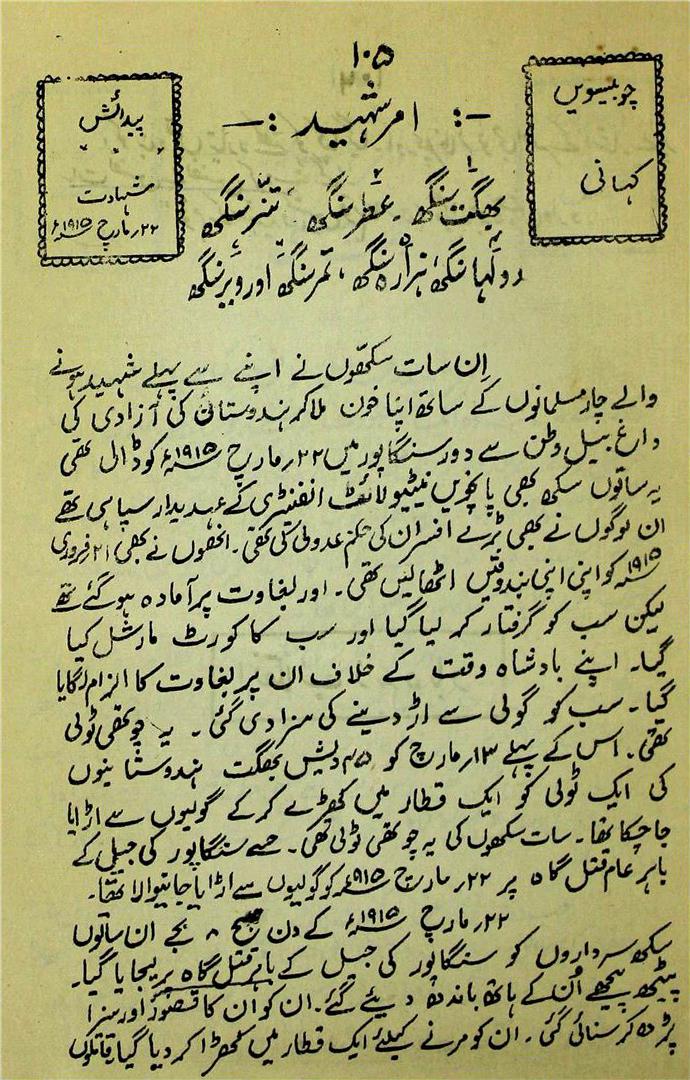 ۱۰۵
چوبیسویں
کہانی
-: امر شہید :-
پیدائش
" " "
شہادت
۲۲؍ مارچ ۱۹۱۵ء
۱ بھگت سنگھ ۔ ۲ عطر سنگھ ۔ ۳ تنذر سنگھ
۴ دولہا سنگھ، ۵ ہزارہ سنگھ، ۶ ثمر سنگھ اور ۷ ویر سنگھ
اِن سات سکھوں نے اپنے سے پہلے شہید ہونے
والے چار مسلمانوں کے ساتھ اپنا خون ملا کر ہندوستان کی آزادی کی
داغ بیل وطن سے دور سنگاپور میں ۲۲؍ مارچ ۱۹۱۵ء کو ڈال تھی
یہ ساتوں سکھ بھی پانچویں نیٹیو لائٹ انفنٹری کے عہدیدار سپاہی تھے
ان لوگوں نے بھی بڑے افسران کی حکم عدولی کی تھی۔ انھوں نے بھی ۲۱ فروری
۱۹۱۵ء کو اپنی اپنی بندوقیں اٹھا لیں تھی۔ اور بغاوت پر آمادہ ہو گئے تھے
لیکن سب کو گرفتار کر لیا گیا اور سب کا کورٹ مارشل کیا
گیا۔ اپنے بادشاہ وقت کے خلاف ان پر بغاوت کا الزام لگایا
گیا۔ سب کو گولی سے اڑا دینے کی سزا دی گئی ۔ یہ چوتھی ٹولی
تھی۔ اس کے پہلے ۱۳؍ مارچ کو ۴۵ دیش بھگت ہندوستانیوں
کی ایک ٹولی کو ایک قطار میں کھڑے کر کے گولیوں سے اڑایا
جا چکا تھا۔ سات سکھوں کی یہ چوتھی ٹولی تھی۔ جسے سنگاپور کی جیل کے
باہر عام قتل گاہ پر ۲۲؍ مارچ ۱۹۱۵ء کو گولیوں سے اڑایا جانیوالا تھا۔
۲۲؍ مارچ ۱۹۱۵ء کے دن صبح ۸ بجے ان ساتوں
سکھ سرداروں کو سنگاپور کی جیل کے باہر قتل گاہ پر لیجایا گیا۔
پیٹھ پیچھے اُن کے ہاتھ باندھ دیئے گئے۔ ان کو ان کا قصور اور سزا
پڑھ کر سنائی گئی ۔ ان کو مرنے کیلئے ایک قطار میں کھڑا کر دیا گیا، قاتلوں